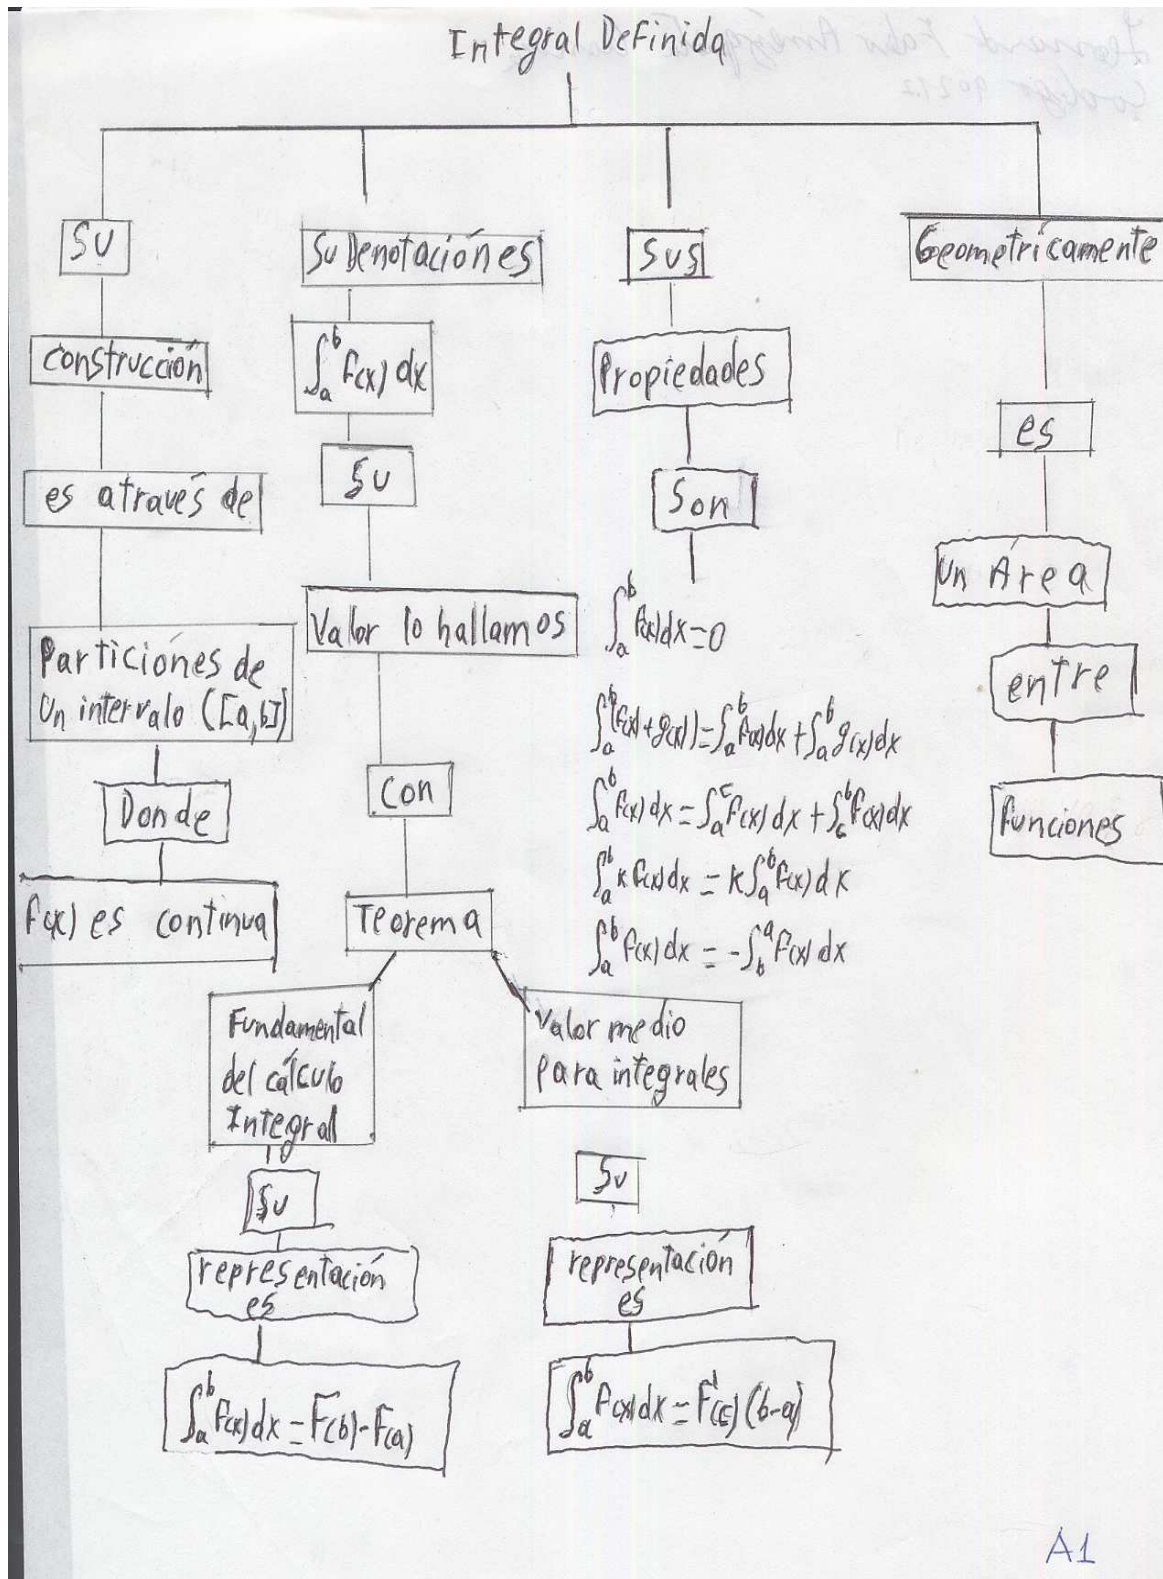 Integral Definida
Su
construcción
es através de
Particiones de
un intervalo ([a,b])
Donde
f(x) es continua
Su Denotación es
∫_a^b f(x) dx
Su
Valor lo hallamos
con
Teorema
Fundamental
del cálculo
Integral
Su
representación
es
∫_a^b f(x)dx = F(b)-F(a)
Valor medio
para integrales
Su
representación
es
∫_a^b f(x)dx = F'(c) (b-a)
Sus
Propiedades
Son
∫_a^b f(x)dx=0
∫_a^b (f(x)+g(x))=∫_a^b f(x)dx+∫_a^b g(x)dx
∫_a^b f(x)dx=∫_a^c f(x)dx+∫_c^b f(x)dx
∫_a^b k f(x)dx = k∫_a^b f(x)dx
∫_a^b f(x)dx = -∫_b^a f(x)dx
Geometrícamente
es
Un Área
entre
funciones
A1